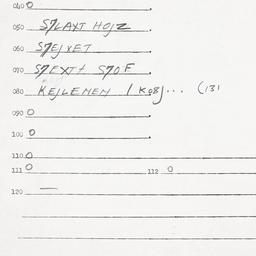 040 0
050 S7LAXT HOJZ
060 S7EJVET
070 S7EXT+ S7OF
080 KEJLEMEN / K08J... (131
090 0
100 0
110 0
111 0 112 0
120 —